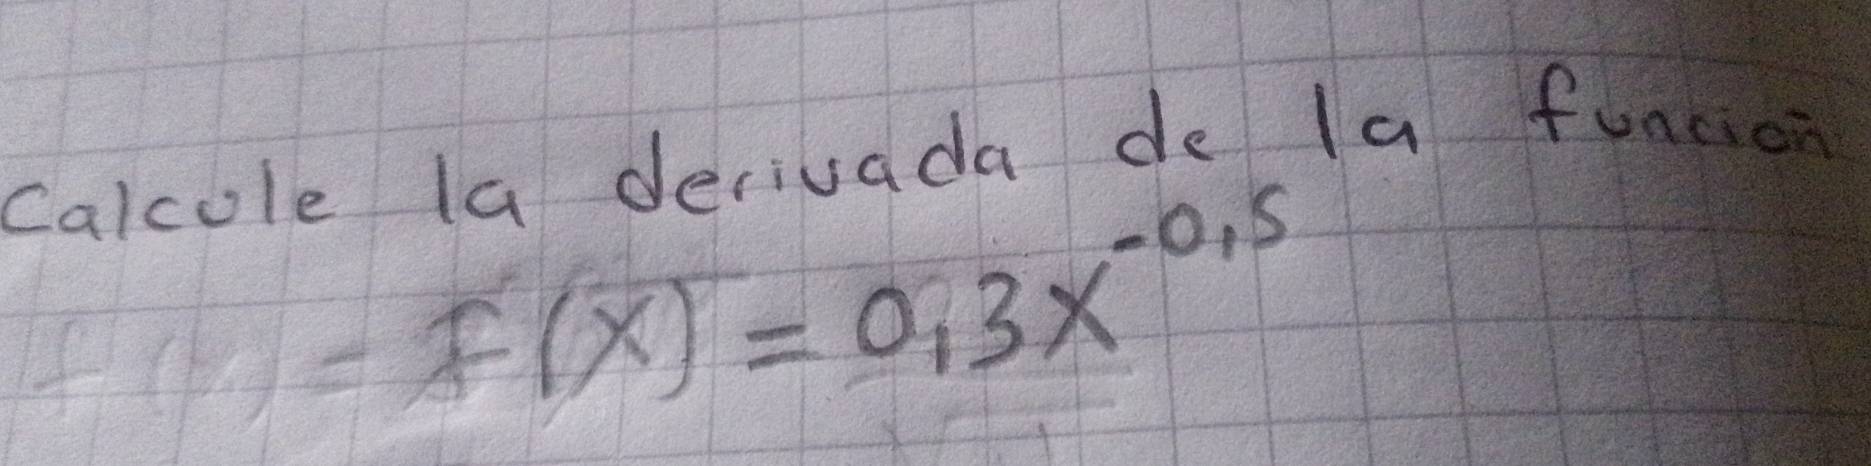 Calcule la derivada de la función
F(X) = 0,3X^-0,5